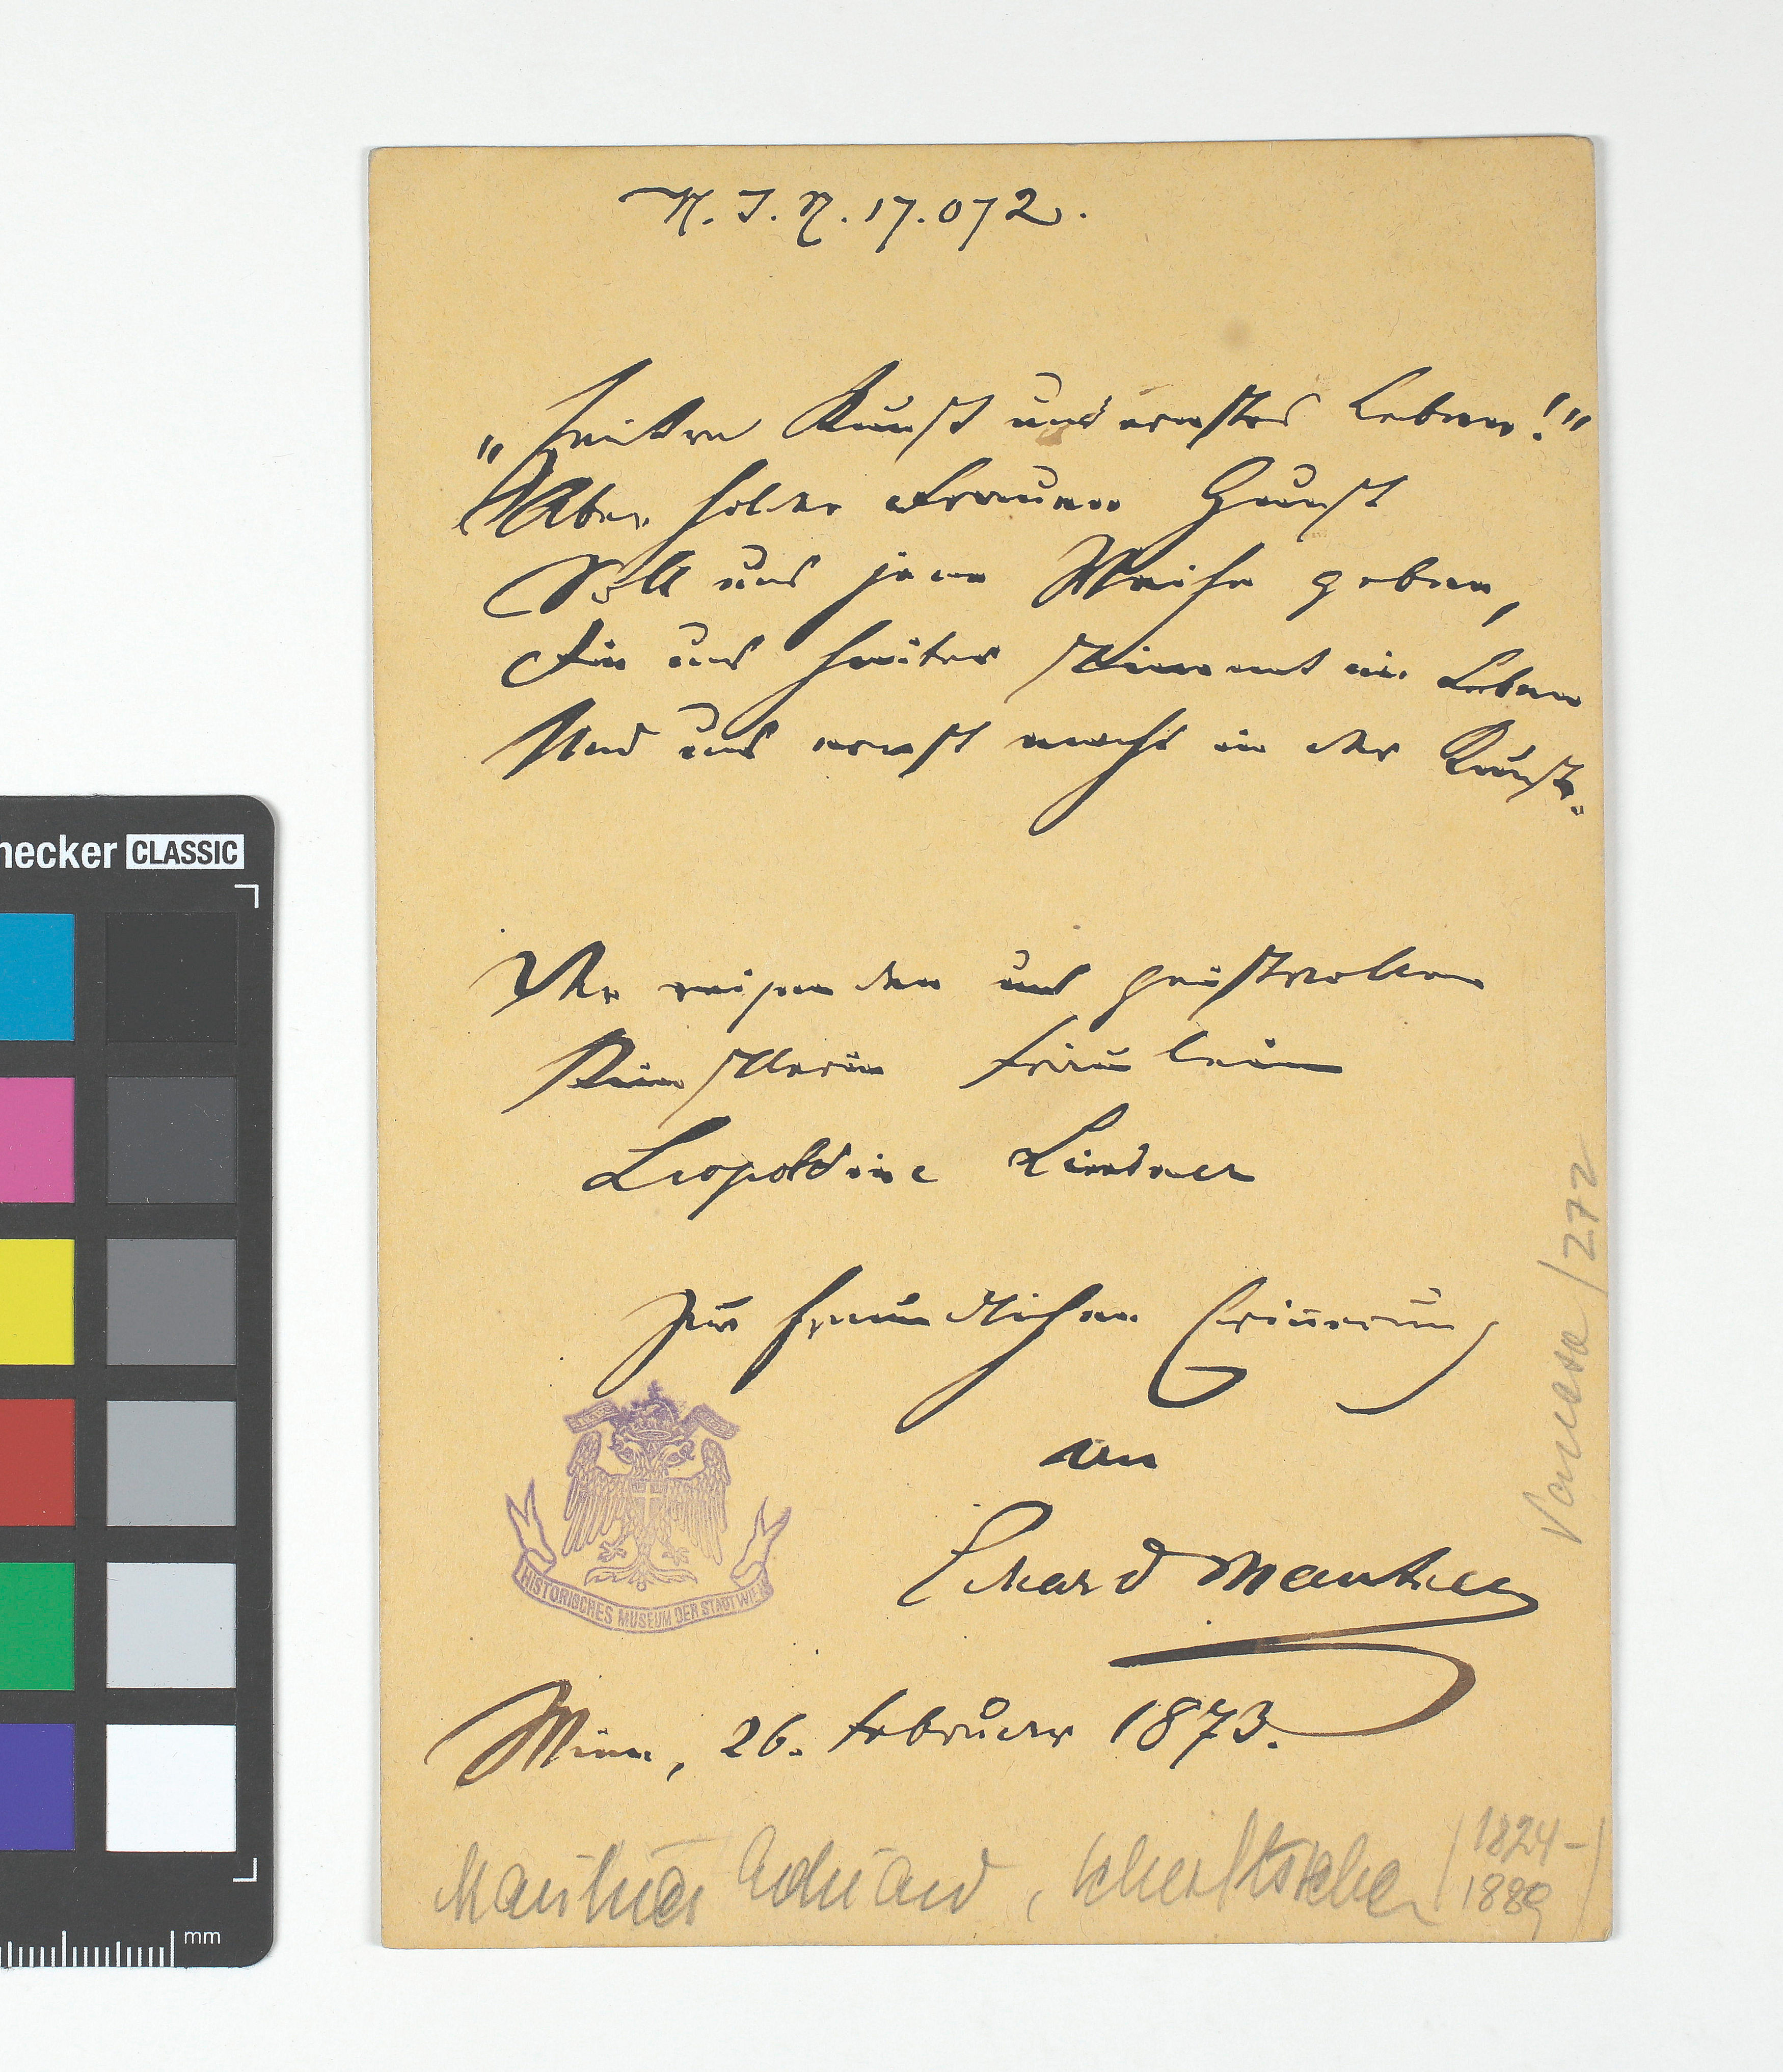 H. I. N. 17.072.
„Heitre Kunst und ernstes Leben!"
Aber holder Frauen Gunst
Soll uns jene Weihe geben,
Die uns heiter stimmt im Leben
Und uns ernst macht in der Kunst.
Der reizenden und geistvollen
Künstlerin Fräulein
Leopoldine Lindner
zur freundlichen Erinnerung
an
Eduard Mautner
Wien, 26. Februar 1873.
HISTORISCHES MUSEUM DER STADT WIEN
Mautner Eduard, Schriftsteller (1824–
1889)
/272
necker CLASSIC
mm